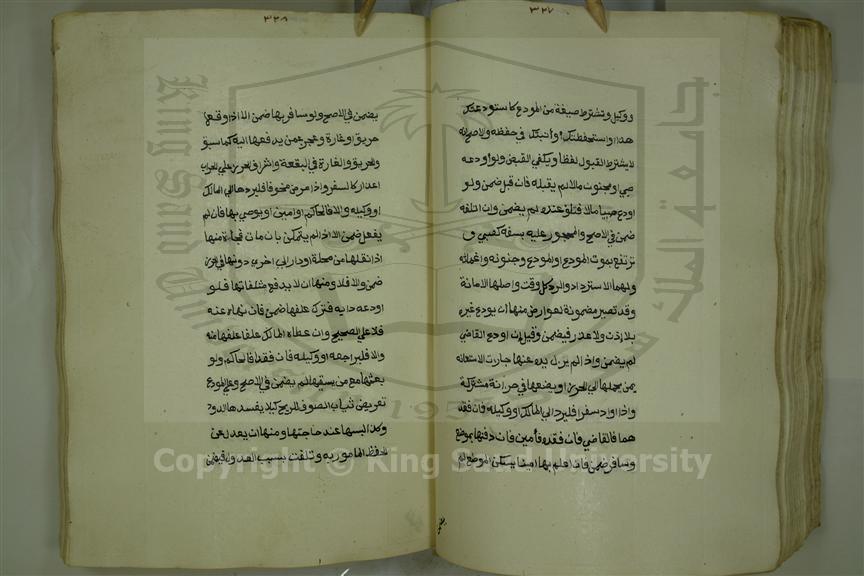 ٣٢٧
ووكيل وتشترط صيغة من المودع كاستودعتك
هذا او استحفظتك او انبتك في حفظه والاصح انه
لا يشترط القبول لفظا ويكفي القبض ولو اودعه
صبي او مجنون مالا لم يقبله فان قبل ضمن ولو
اودع صبيا مالا فتلف عنده لم يضمن وان اتلفه
ضمن في الاصح والمحجور عليه بسفه كصبي و
ترتفع بموت المودع او المودع وجنونه واغمائه
ولهما الاسترداد والرد كل وقت واصلها الامانة
وقد تصير مضمونة لعوارض منها ان يودع غيره
بلا اذن ولا عذر فيضمن وقيل ان اودع القاضي
لم يضمن واذا لم يزل يده عنها جازت الاستعانة
بمن يحملها الي الحرز او يضعها في خزانة مشتركة
واذا اراد سفرا فليرد الي المالك او وكيله فان فقد
هما فالقاضي فان فقده فأمين فان دفنها بموضع
وسافر ضمن فان اعلم بها امينا يسكن الموضع لم
٣٢٨
يضمن في الاصح ولو سافر بها ضمن الا اذا وقع
حريق او غارة وعجز عمن يدفعها اليه كما سبق
والحريق والغارة في البقعة واشراف الحرز علي الخراب
اعذار كالسفر واذا مرض مخوفا فليردها الي المالك
او وكيله والا فالحاكم او امين او يوصي بها فان لم
يفعل ضمن الا اذا لم يتمكن بان مات فجاة ومنها
اذا نقلها من محلة او دار الي اخري دونها في الحرز
ضمن والا فلا ومنها ان لا يدفع متلفاتها فلو
اودعه دابة فترك علفها ضمن فان نهاه عنه
فلا علي الصحيح وان اعطاه المالك علفا علفها منه
والا فليراجعه او وكيله فان فقدا فالحاكم ولو
بعثها مع من يسقيها لم يضمن في الاصح وعلي المودع
تعريض ثياب الصوف للريح كيلا يفسدها الدود
وكذا لبسها عند حاجتها ومنها ان يعدل عن
الحفظ المامور به وتلفت بسبب العدول فيضمن
Copyright © King Saud University
King Saud University
جامعة الملك سعود
1957